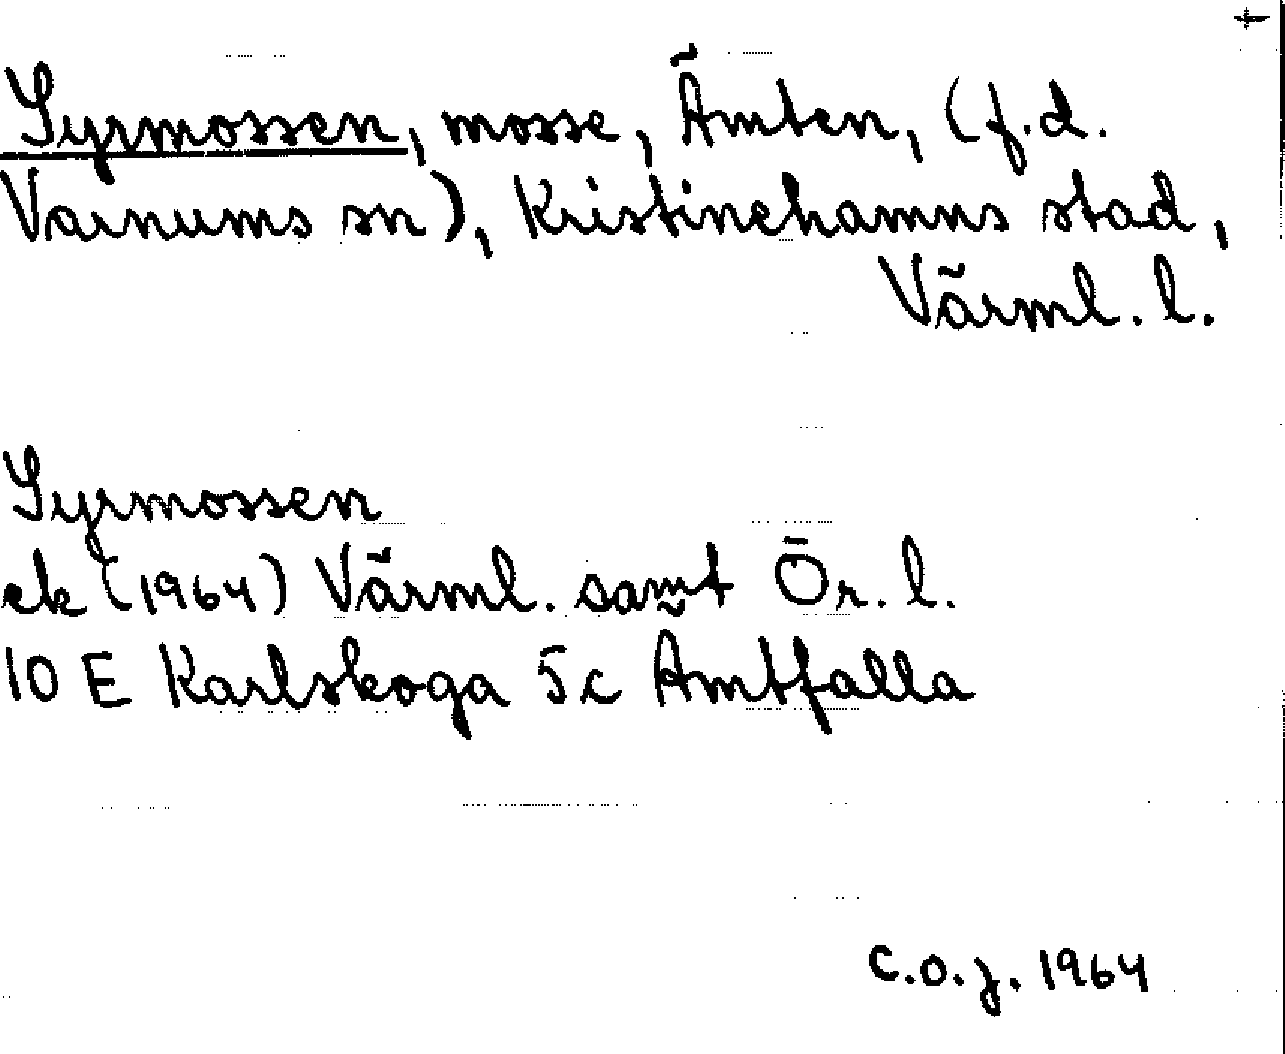 +
Syrmossen, mosse, Ämten, (f.d.
Varnums sn), Kristinehamns stad,
Värml. l.
Syrmossen
ek (1964) Värml. samt Ör. l.
10 E Karlskoga 5c Ämtfalla
C.O.J. 1964